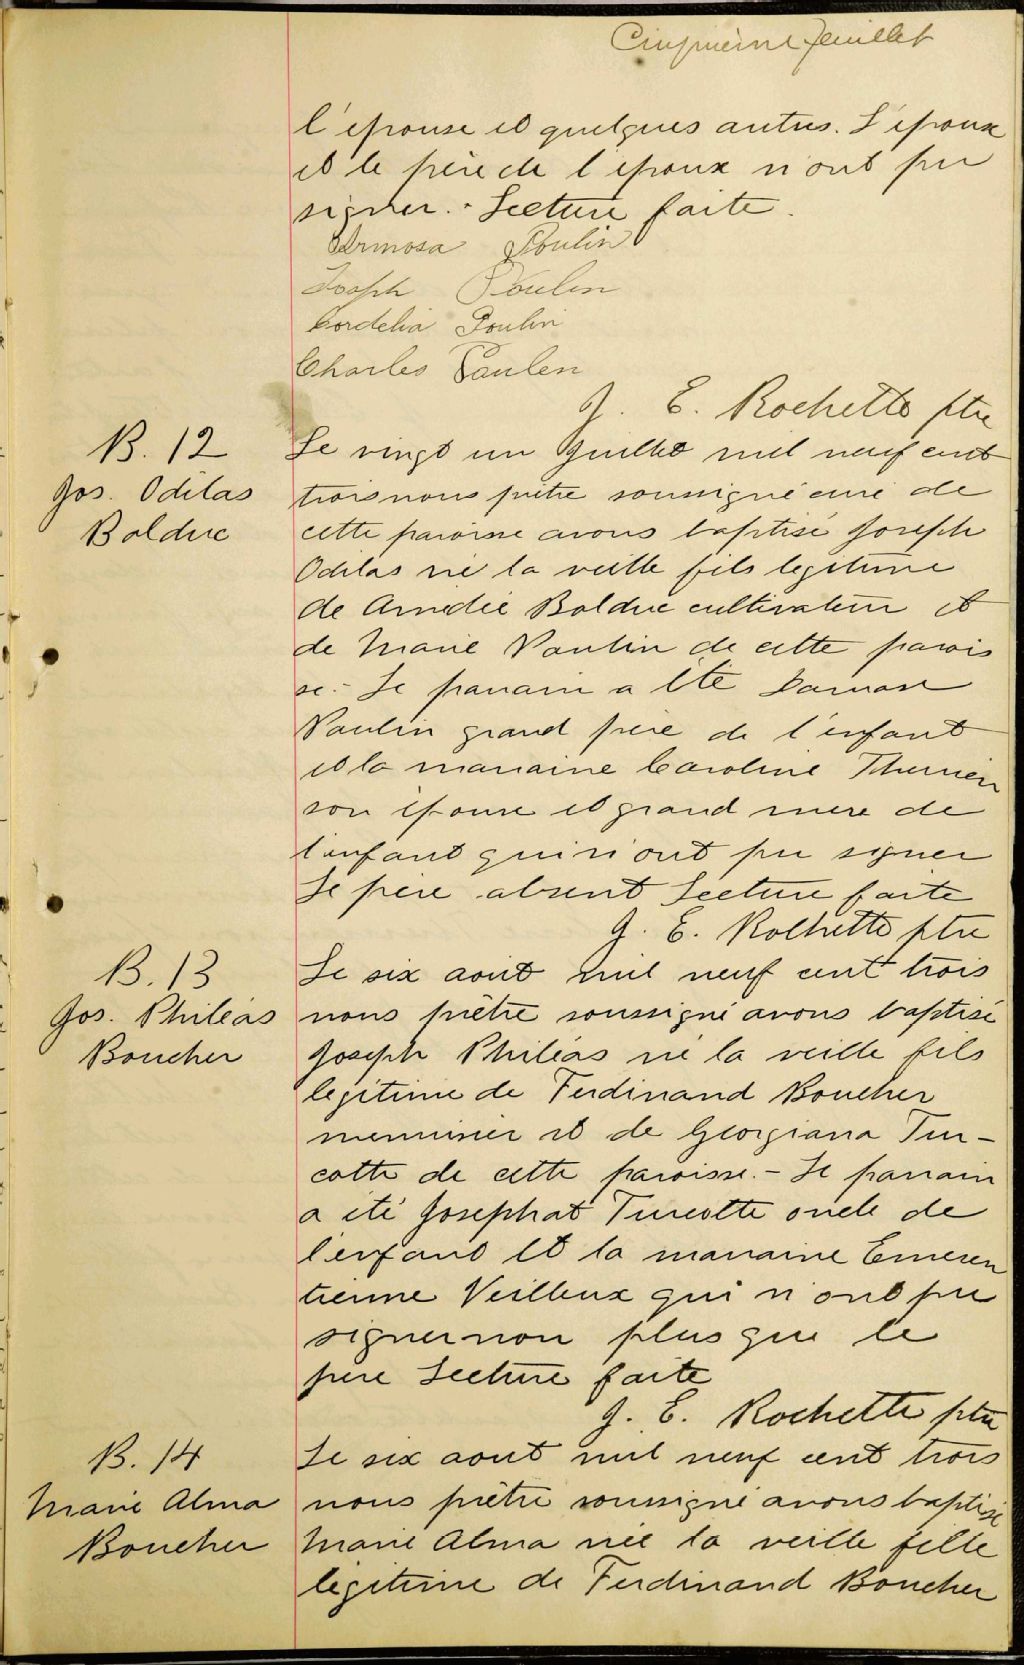 Cinquième feuillet
l'épouse et quelques autres. L'époux
et le père de l'époux n'ont pu
signer.- Lecture faite.
Armosa Poulin
Joseph Poulin
Cordelia Poulin
Charles Paulen
J. E. Rochette ptre
B. 12
Jos. Odilas
Bolduc
Le vingt un Juillet mil neuf cent
trois nous prêtre soussigné curé de
cette paroisse avons baptisé Joseph
Odilas né la veille fils legitime
de Amédée Bolduc cultivateur et
de Marie Poulin de cette parois
se.- Le parrain a été Damase
Poulin grand père de l'enfant
et la marraine Caroline Therrien
son épouse et grand mère de
l'enfant qui n'ont pu signer
Le père absent Lecture faite
J. E. Rochette ptre
B. 13
Jos. Philéas
Boucher
Le six août mil neuf cent trois
nous prêtre soussigné avons baptisé
Joseph Philéas né la veille fils
legitime de Ferdinand Boucher
menuisier et de Georgiana Tur-
cotte de cette paroisse.- Le parrain
a été Josephat Turcotte oncle de
l'enfant et la marraine Emeren
tienne Veilleux qui n'ont pu
signer non plus que le
père Lecture faite
J. E. Rochette ptre
B. 14
Marie Alma
Boucher
Le six août mil neuf cent trois
nous prêtre soussigné avons baptisé
Marie Alma née la veille fille
legitime de Ferdinand Boucher